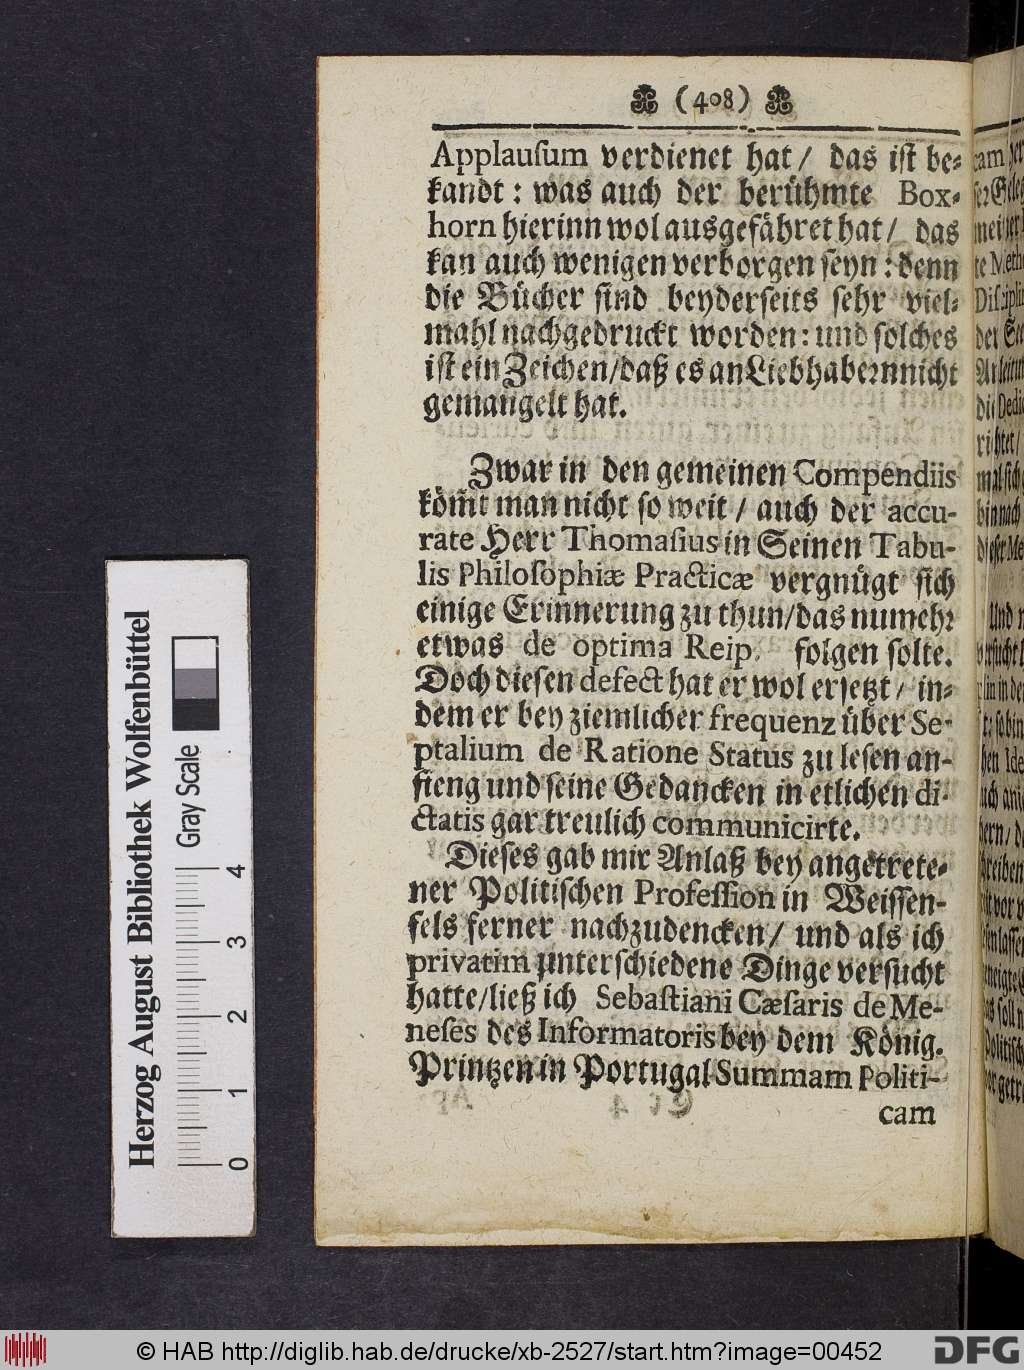 (408)
Applauſum verdienet hat / das iſt be-
kandt: was auch der berühmte Box-
horn hierinn wol ausgefähret hat / das
kan auch wenigen verborgen ſeyn: denn
die Bücher ſind beyderſeits ſehr viel-
mahl nachgedruckt worden: und ſolches
iſt ein Zeichen / daß es an Liebhabern nicht
gemangelt hat.
Zwar in den gemeinen Compendiis
köm̃t man nicht ſo weit / auch der accu-
rate Herr Thomaſius in Seinen Tabu-
lis Philoſophiæ Practicæ vergnügt ſich
einige Erinnerung zu thun / das numehr
etwas de optima Reip. folgen ſolte.
Doch dieſen defect hat er wol erſetzt / in-
dem er bey ziemlicher frequenz über Se-
ptalium de Ratione Status zu leſen an-
fieng und ſeine Gedancken in etlichen di-
ctatis gar treulich communicirte.
Dieſes gab mir Anlaß bey angetrete-
ner Politiſchen Profeſſion in Weiſſen-
fels ferner nachzudencken / und als ich
privatim unterſchiedene Dinge verſucht
hatte / ließ ich Sebaſtiani Cæſaris de Me-
neſes des Informatoris bey dem König.
Printzen in Portugal Summam Politi-
cam
Herzog August Bibliothek Wolfenbüttel
Gray Scale
0 1 2 3 4
© HAB http://diglib.hab.de/drucke/xb-2527/start.htm?image=00452
DFG